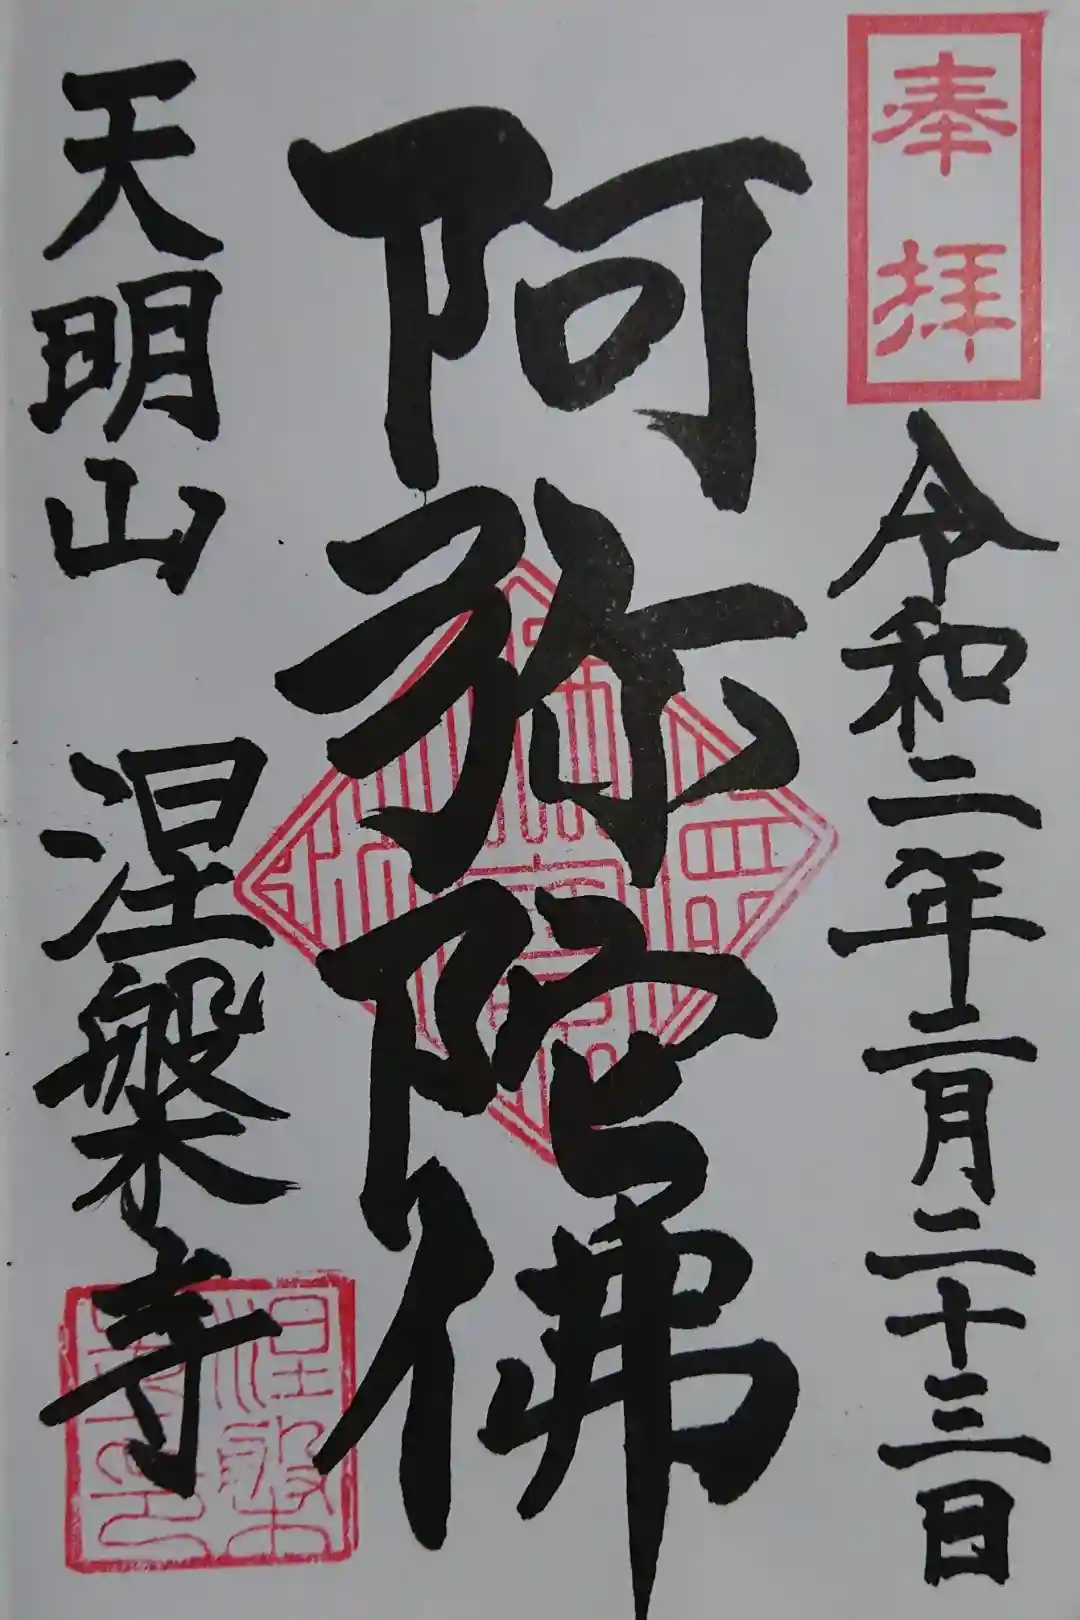 奉拝
令和二年二月二十三日
阿弥陀佛
天明山 涅槃寺
涅槃
寺印